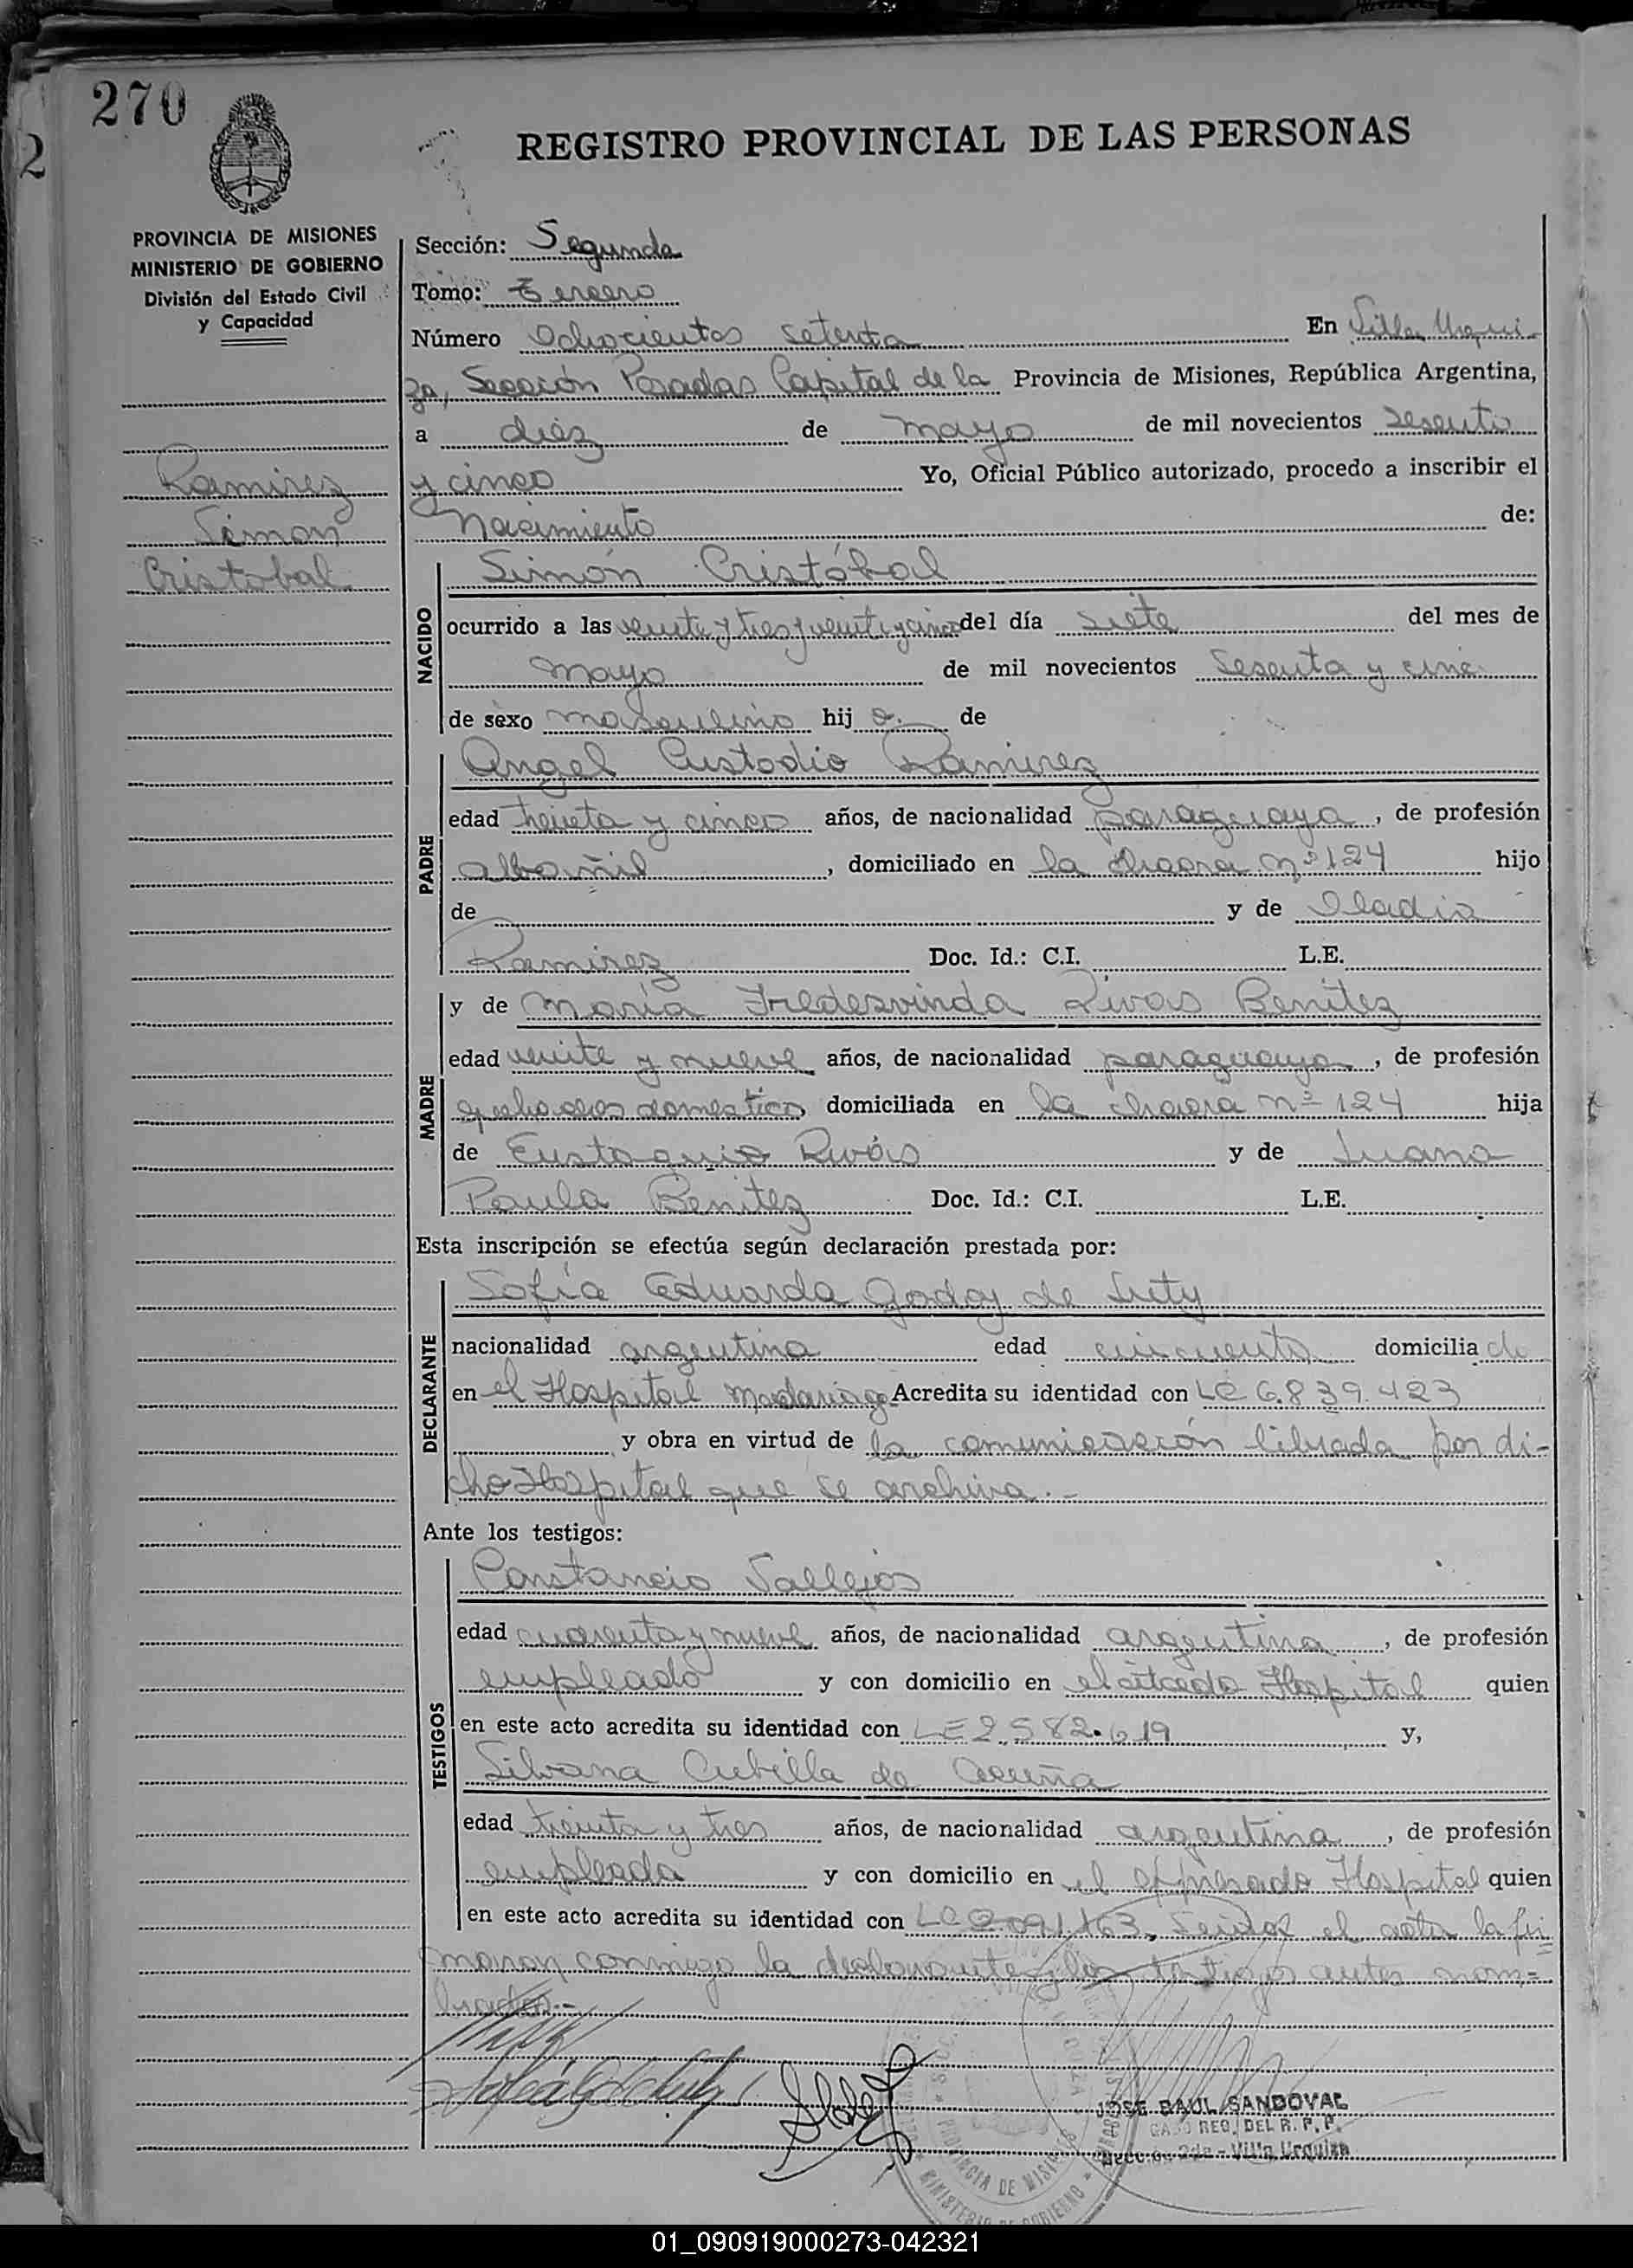 270
2
REGISTRO PROVINCIAL DE LAS PERSONAS
PROVINCIA DE MISIONES
MINISTERIO DE GOBIERNO
División del Estado Civil
y Capacidad
Ramirez
Simon
Cristobal
Sección: Segunda
Tomo: Tercero
Número Ochocientos setenta En Villa Urqui-
za, Sección Posadas Capital de la Provincia de Misiones, República Argentina,
a diez de mayo de mil novecientos sesenta
y cinco Yo, Oficial Público autorizado, procedo a inscribir el
Nacimiento de:
NACIDO
Simón Cristóbal
ocurrido a las veinte y tres y veinte y cinco del día siete del mes de
mayo de mil novecientos sesenta y cinc
de sexo masculino hij o. de
PADRE
Angel Custodio Ramirez
edad treinta y cinco años, de nacionalidad paraguaya, de profesión
albañil, domiciliado en la chacra nº 124 hijo
de y de Eladia
Ramirez Doc. Id.: C.I. L.E.
MADRE
y de María Fredesvinda Rivas Benitez
edad veinte y nueve años, de nacionalidad paraguaya, de profesión
quehaceres domesticos domiciliada en la chacra nº 124 hija
de Eustaquio Rivas y de Juana
Paula Benitez Doc. Id.: C.I. L.E.
Esta inscripción se efectúa según declaración prestada por:
DECLARANTE
Sofía Eduarda Godoy de
nacionalidad argentina edad cincuenta domicilia da
en el Hospital Madariaga Acredita su identidad con LC 6.839.423
y obra en virtud de la comunicación librada por di-
cho Hospital que se archiva.-
Ante los testigos:
TESTIGOS
Constancio Vallejos
edad cuarenta y nueve años, de nacionalidad argentina, de profesión
empleado y con domicilio en el citado Hospital quien
en este acto acredita su identidad con LE 2.582.619 y,
Silvana Cubilla de Acuña
edad treinta y tres años, de nacionalidad argentina, de profesión
empleada y con domicilio en el expresado Hospital quien
en este acto acredita su identidad con LC 2.091.163, Leida el acta la fir
maron conmigo la declarante y los testigos antes nom-
brados.-
JOSE RAUL SANDOVAL
REG. DEL R. P. P.
Secc. 2da - Villa Urquiza
PROVINCIA DE MISIONES
MINISTERIO DE GOBIERNO
01_090919000273-042321